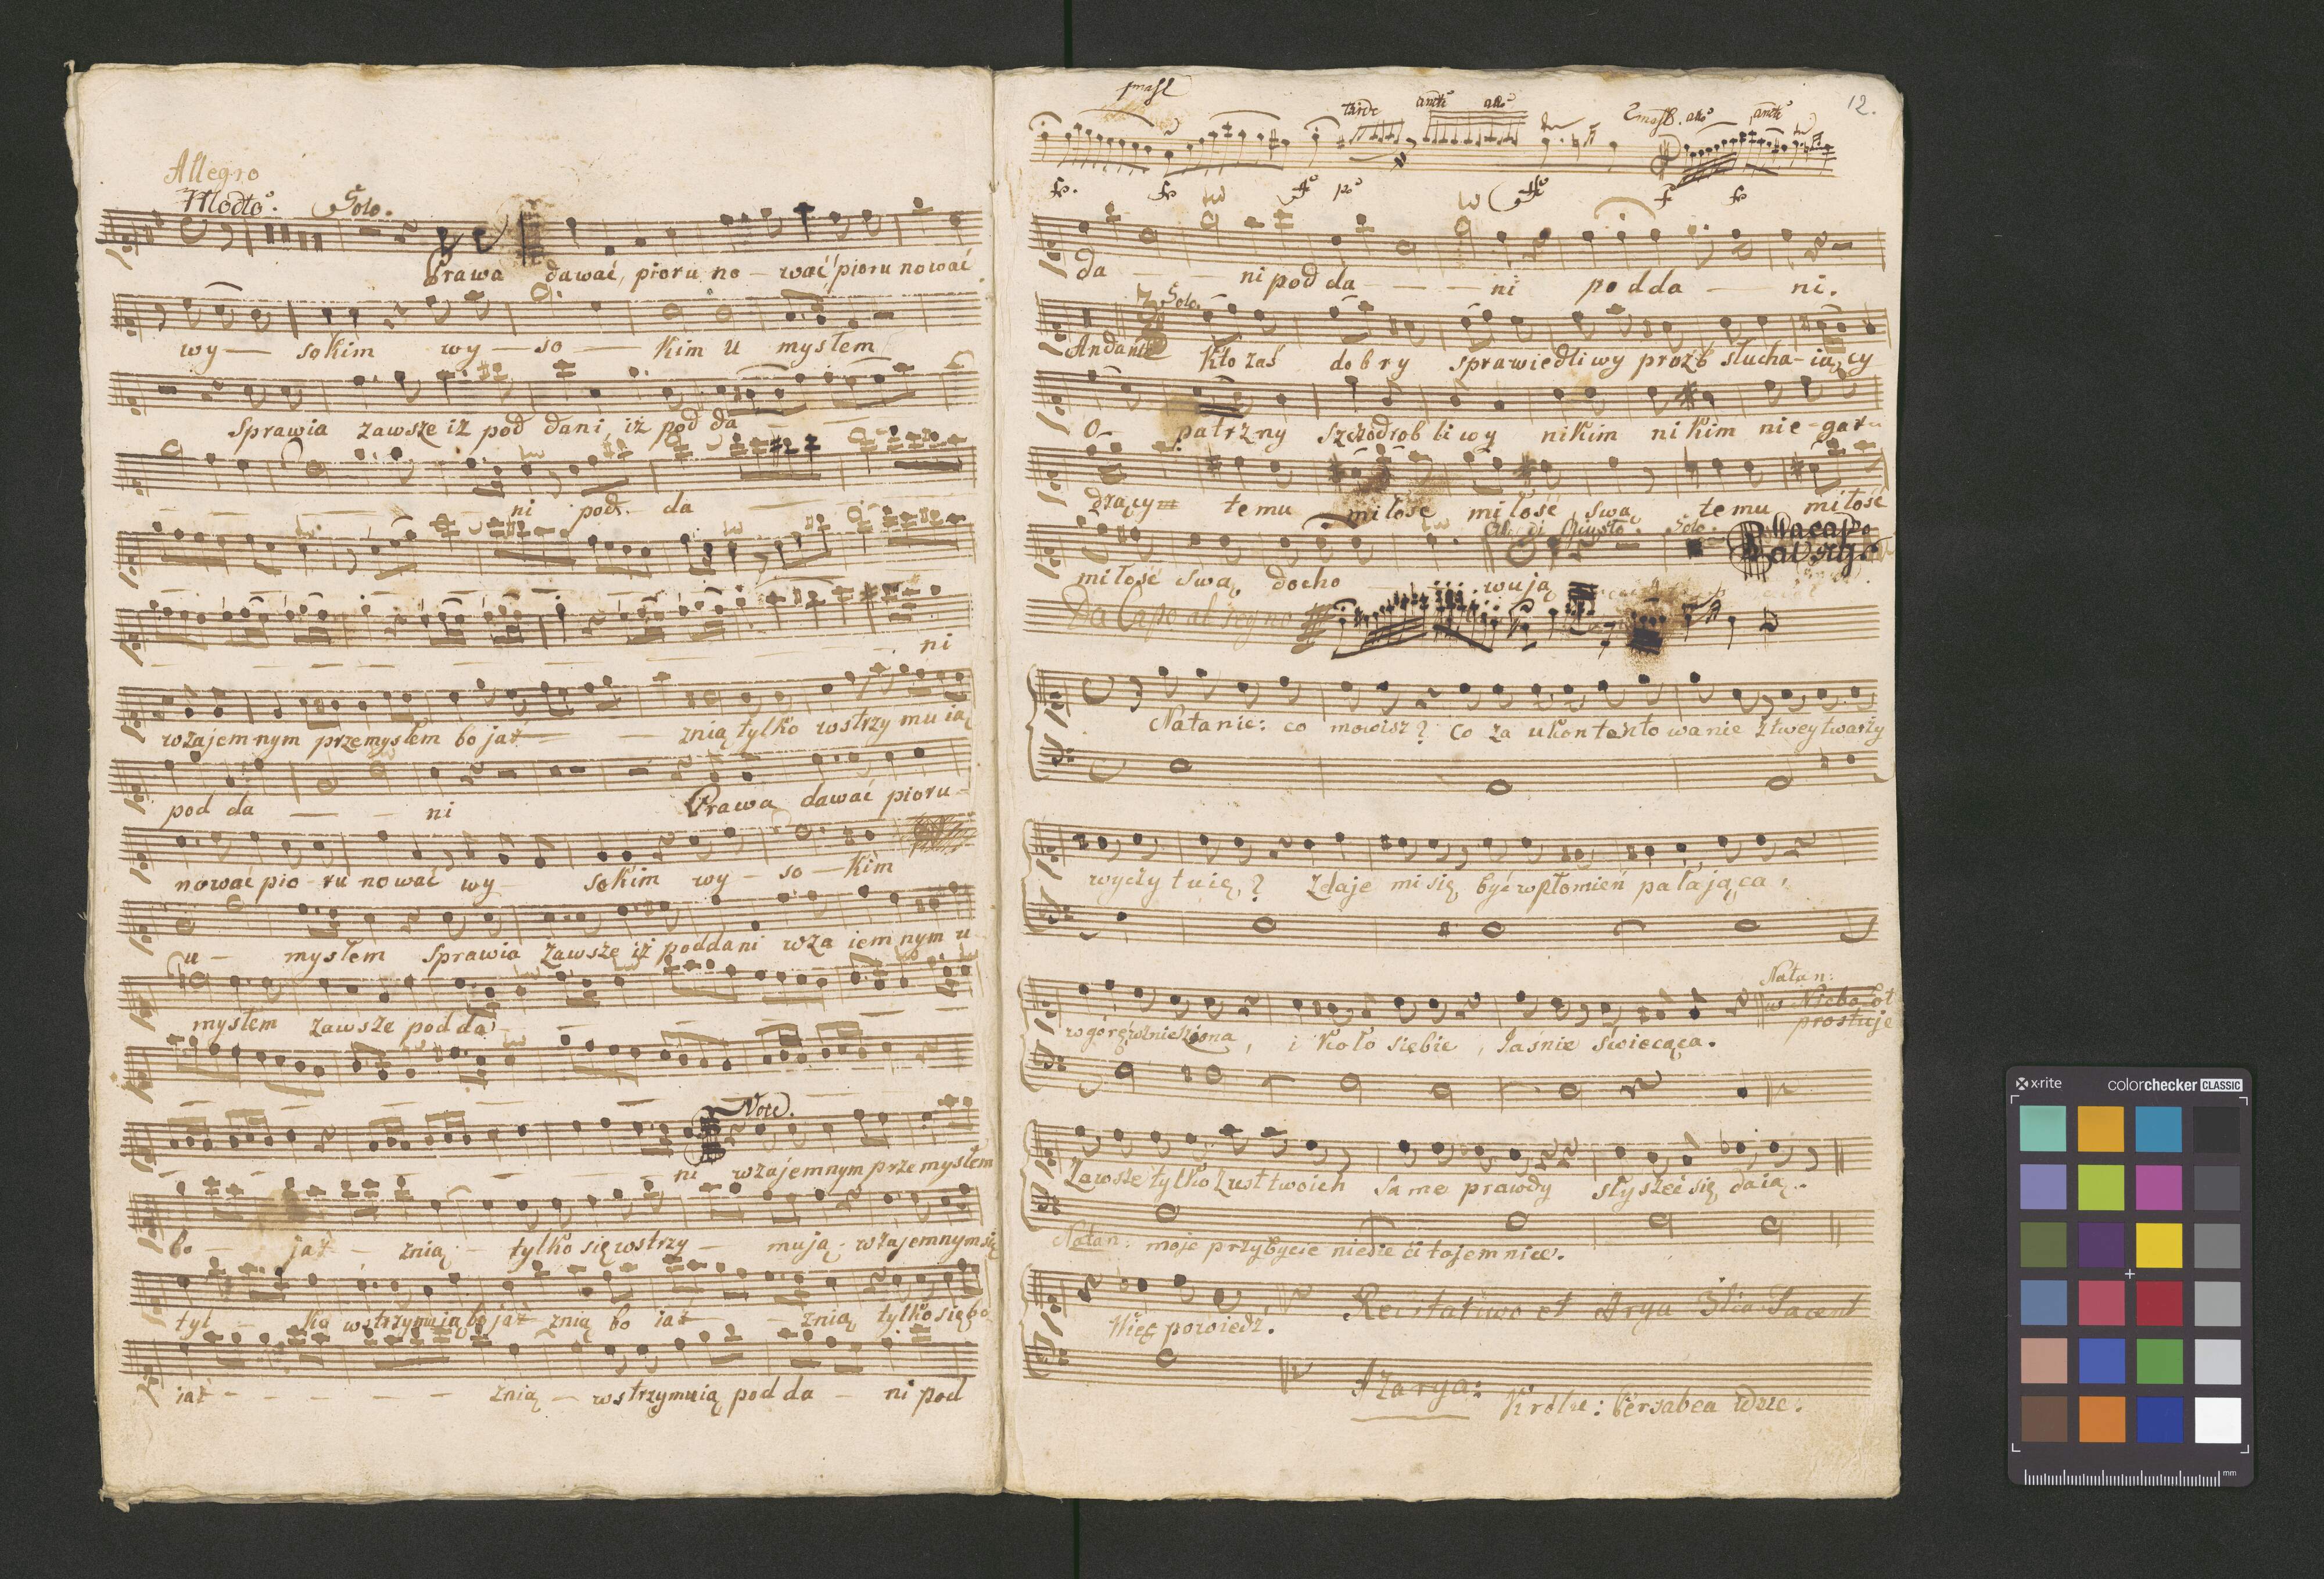 Allegro
Modto. Solo.
Prawa dawać, pioru no - wać, pioru nować
wy - sokim wy - so - kim u mysłem
Sprawia zawsze iż pod dani, iż pod da
ni pod. da
ni
wzajemnym przemysłem bo jaź - znią tylko wstrzy mu ią
pod da - - ni Prawa dawać pioru -
nować pio - ru nować wy - sokim wy - so - kim
u - mysłem sprawia zawsze iż poddani wza iem nym u
mysłem zawsze pod da
Note.
ni wzajemnym prze mysłem
bo - jaź - znią - tylko się wstrzy - mują - wzajemnym się
tyl - ko wstrzymuią bo jaź znią bo iaź - znią tylko się bo
iaź - - - - - znią - wstrzymuią pod da - ni pod
12.
tarde andte allo 2 andte
fo. fo po f fo
da ni pod da - - - ni po dda - ni.
Solo.
Andante Kto zaś dobry sprawiedliwy prozb słucha - ią, cy
O - patrzny szczodrob liwy nikim nikim nie - gar -
drący temu miłość miłość swą temu miłość
Giusto. Solo. Da capo
miłość swą docho wują
Da Capo al segno
Natanie: co mowisz? Co za ukontento wanie z twey twarzy
wyczytuię,? zdaje mi się być w płomień pałająca,
Natan:
w Niebo lot
prostuje
w górę wzniesiona, i koło siebie, Jaśnie świecąca.
Zawsze tylko z ust twoich same prawdy słyszeć się daią.
Natan: moje przybycie niesie ci tajemnice.
Recitativo et Arya 3tia Tacent
Więc powiedz.
Azarya:
Królu: Bersabea idzie.